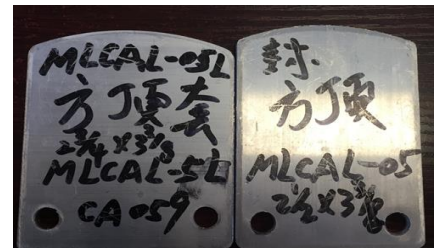 MLCAL-05L
方顶套
2 3/4 x 3 3/8
MLCAL-5L
CA059
方顶
MLCAL-05